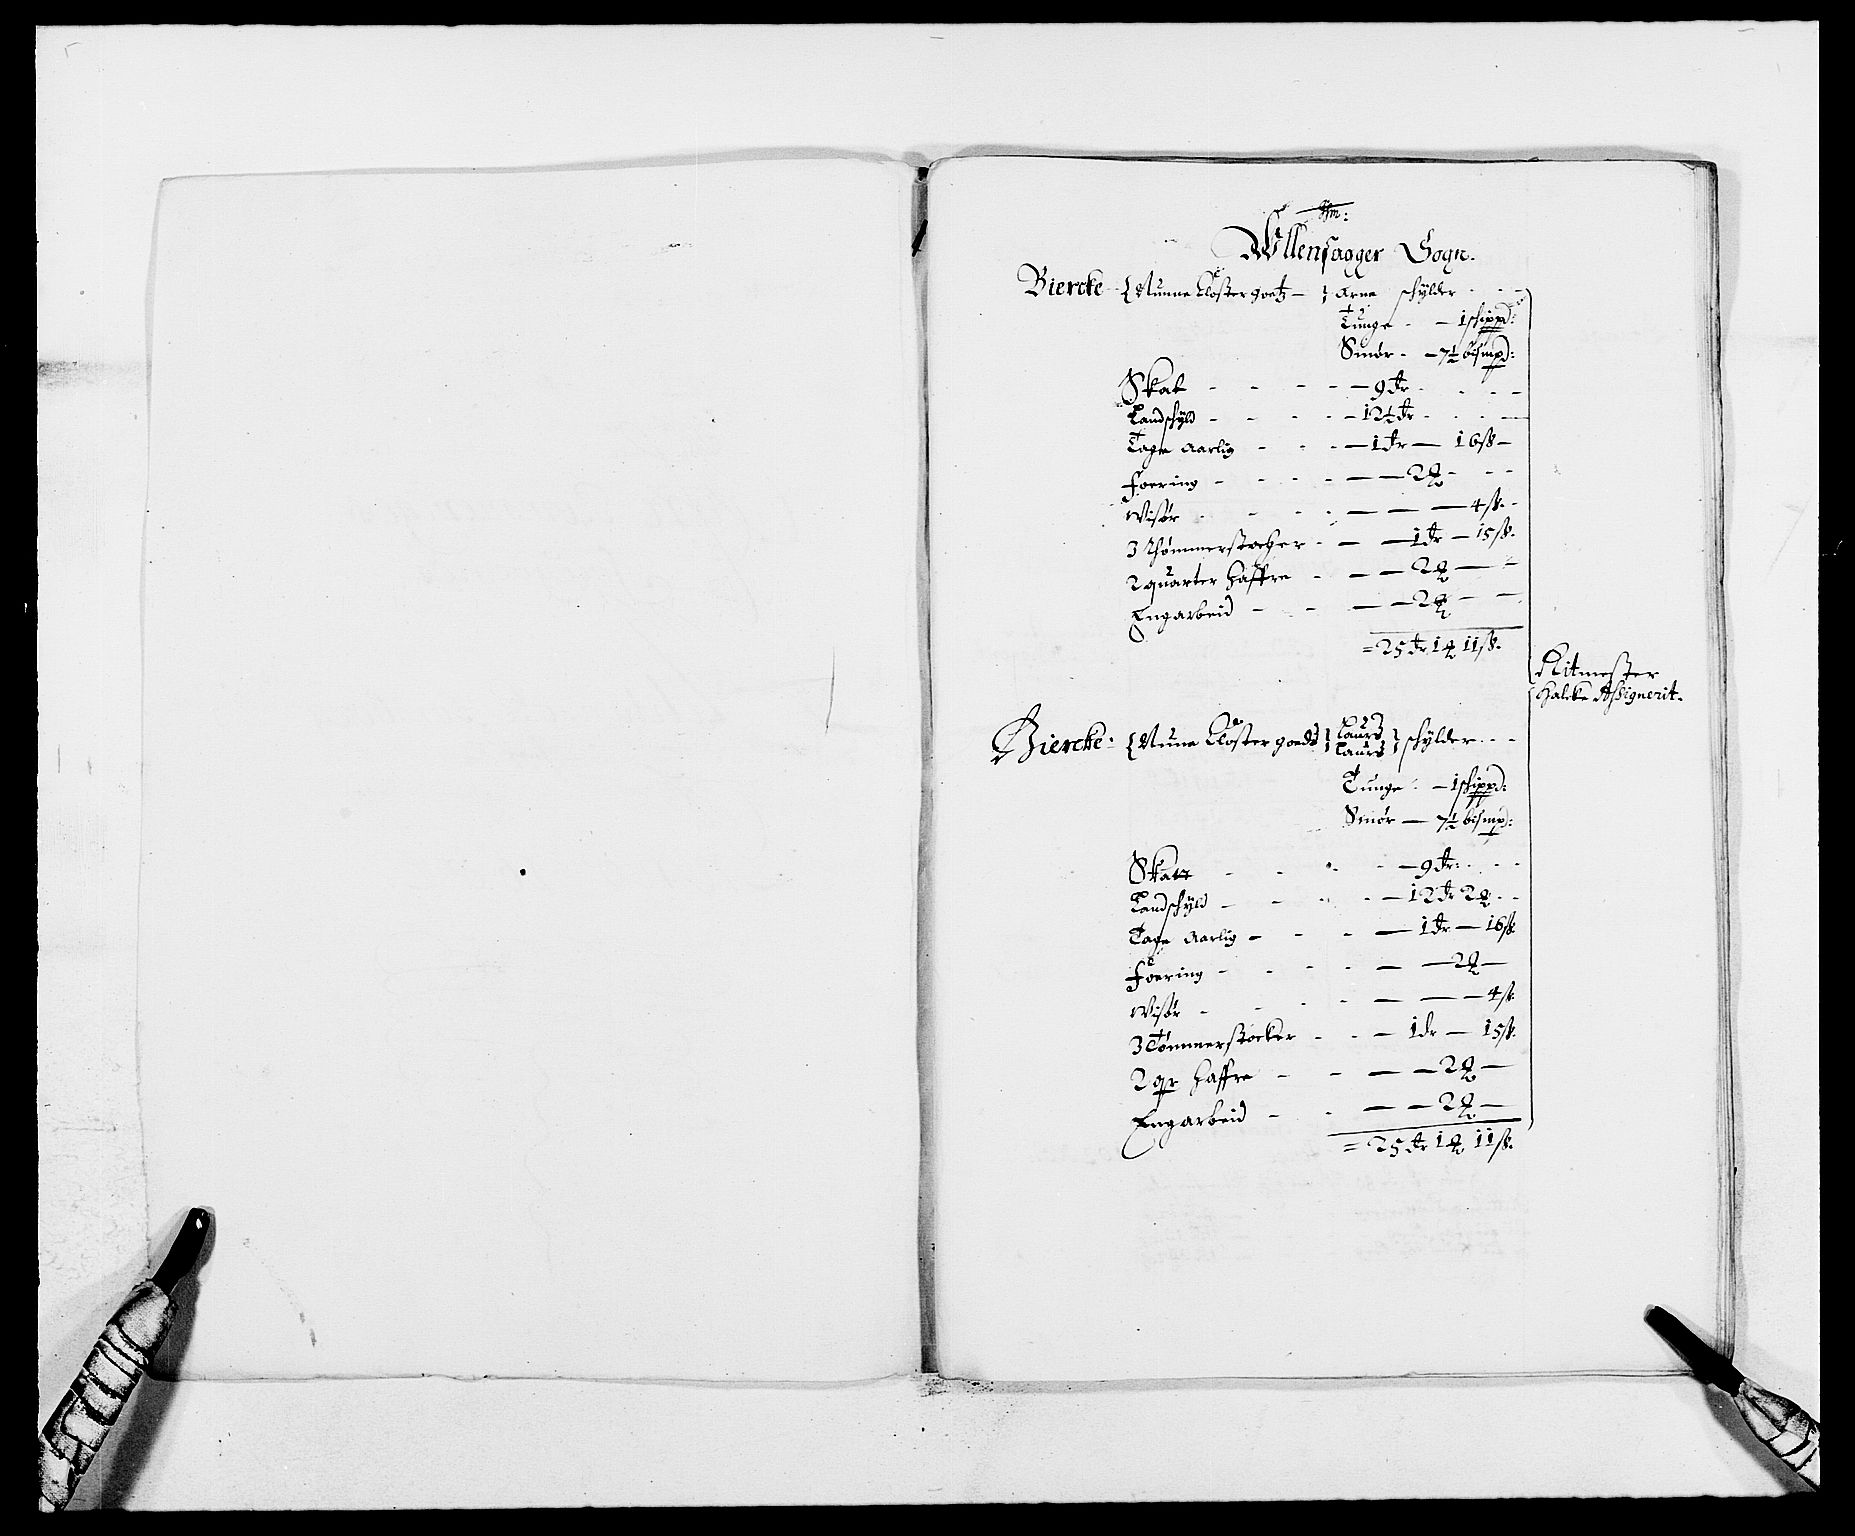 Ullensagger Sogn.
Biercke {Nunne Closter goetz — } Arne schylder
Tunge — 1 schippd:
Smør — 7½ bismpd:
Skat — 9 dr
Landschyld — 12½ dr
Tage Aarlig — 1 dr — 16 ß
Foering — 2
Wisør — 4 ß
3 Thømmerstocher — 1 dr — 15 ß
2 quarter Haffre — 2
Engarbeid — 2
= 25 dr 1 11 ß
Ritmester
Halcke Assignerit.
Biercke: {Nunne Closter goeds} Laurs Laurs} schylder
Tunge — 1 schippd:
Smør — 7½ bismpd:
Skatt — 9 dr:
Landschyld — 12 dr 2
Tage Aarlig — 1 dr — 16 ß
Foering — 2
Wisør — 4 ß
3 Tømmerstocker — 1 dr — 15 ß
2 qr Haffre — 2
Engarbeid — 2
= 25 dr 1 11 ß